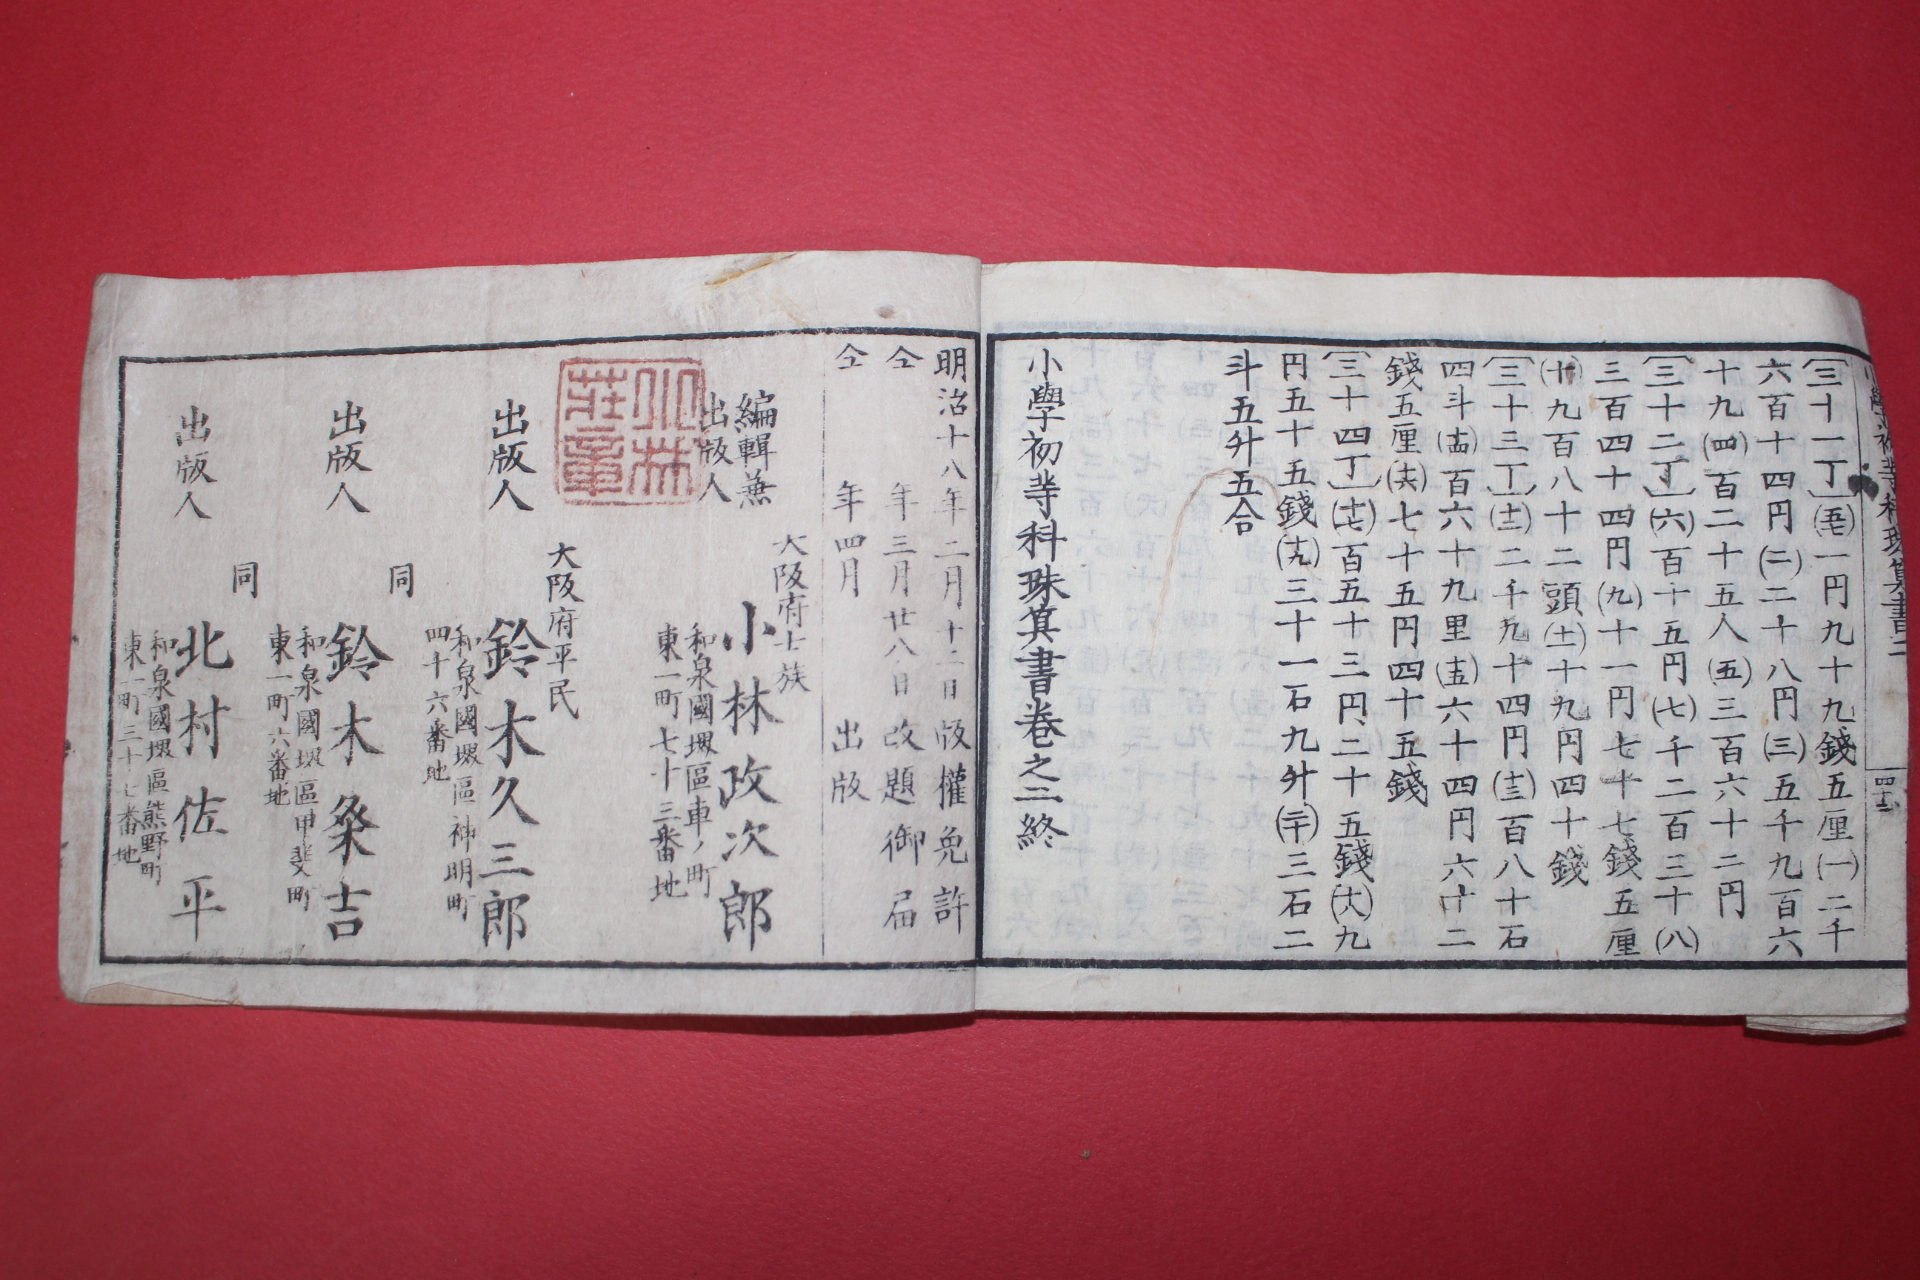 〔三十一丁〕(五)一円九十九錢五厘(一)二千
六百十四円(二)二十八円(三)五千九百六
十九(四)百二十五人(五)三百六十二円
〔三十二丁〕(六)百十五円(七)千二百三十(八)
三百四十四円(九)十一円七十七錢五厘
(十)九百八十二頭(十一)十九円四十錢
〔三十三丁〕(十二)二千九十四円(十三)百八十石
四斗(十四)百六十九里(十五)六十四円六十二
錢五厘(十六)七十五円四十五錢
〔三十四丁〕(十七)百五十三円二十五錢(十八)九
円五十五錢(十九)三十一石九升(二十)三石二
斗五升五合
小學初等科珠算書卷之二終
明治十八年二月十二日版權免許
仝 年三月廿八日改題御届
仝 年四月 出版
編輯兼
出版人
大阪府士族
小林政次郎
和泉國堺區車ノ町
東一町七十三番地
出版人
大阪府平民
鈴木久三郎
和泉國堺區神明町
四十六番地
出版人
同
鈴木桑吉
和泉國堺區甲斐町
東一町六番地
出版人
同
北村佐平
和泉國堺區熊野町
東一町三十七番地